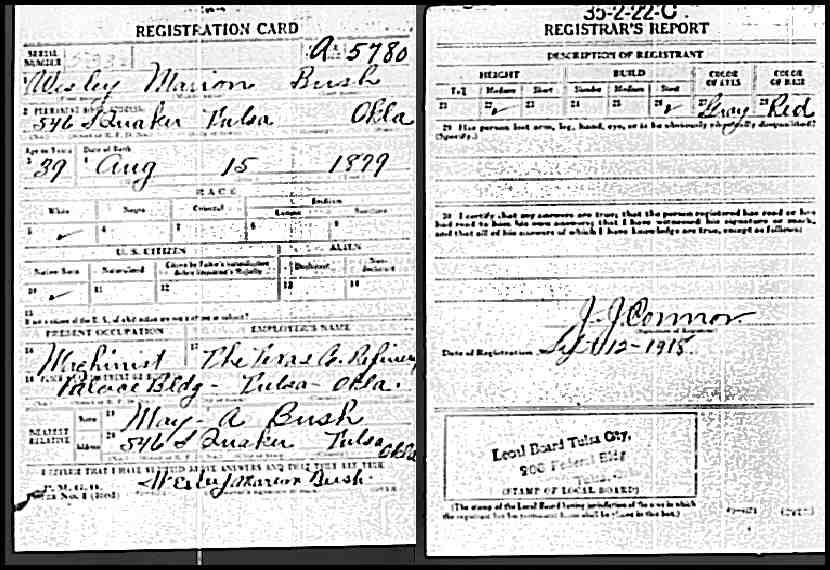 REGISTRATION CARD
SERIAL NUMBER
A 5780
1 Wesley Marion Bush
2 PERMANENT HOME ADDRESS:
546 S Quaker Tulsa Okla
Age in Years Date of Birth
3 39 4 Aug 15 1879
RACE
White Negro Oriental Indian
U. S. CITIZEN ALIEN
Native Born Naturalized Citizen by Father's Naturalization Before Registrant's Majority Declarant Non-declarant
10 11 12 13 14
15
PRESENT OCCUPATION EMPLOYER'S NAME
16 Machinist 17 The Texas Co. Refinery
18
Palace Bldg - Tulsa - Okla.
NEAREST RELATIVE Name 19 May - A Bush
Address 20 546 S Quaker Tulsa Okla
I AFFIRM THAT I HAVE VERIFIED ABOVE ANSWERS AND THAT THEY ARE TRUE
Wesley Marion Bush
35-2-22-C
REGISTRAR'S REPORT
DESCRIPTION OF REGISTRANT
HEIGHT BUILD COLOR OF EYES COLOR OF HAIR
Tall Medium Short Slender Medium Stout
21 22 23 24 25 26 27 Gray 28 Red
29 Has person lost arm, leg, hand, eye, or is he obviously physically disqualified?
(Specify.)
30 I certify that my answers are true; that the person registered has read or has
had read to him his own answers; that I have witnessed his signature or mark,
and that all of his answers of which I have knowledge are true, except as follows:
J. J. Connor
Date of Registration 12-1918
Local Board Tulsa City,
200 Federal Bldg
Tulsa,
(STAMP OF LOCAL BOARD)
(The stamp of the Local Board having jurisdiction of the area in which
the registrant has his permanent home shall be placed in this box.)